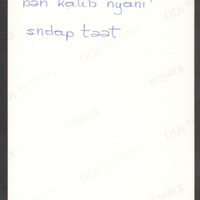 pən kalib nyani'
sndap təət